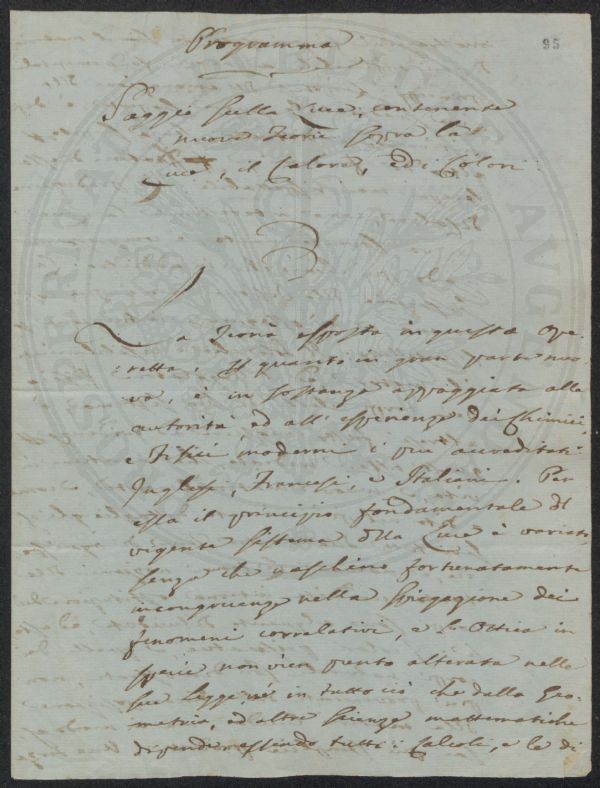 95
Programma
Saggio sulla Luce, contenente
nuove Teorie sopra la
Luce, il Calore, ed i Colori
La Teoria esposta in questa ope-
retta, quanto in gran parte nuo-
va, è in sostanza appoggiata alla
autorità ed all' esperienze dei Chimici
e Fisici moderni i più accreditati
Inglesi, Francesi, e Italiani. Per
essa il principio fondamentale del
vigente sistema della Luce è variato
senza che naschino fortunatamente
incongruenze nella spiegazione dei
fenomeni correlativi, e l' Ottica in
specie non vien punto alterata nelle
sue Leggi, nè in tutto ciò che dalla Geo-
metria, ed altre scienze mattematiche
dipende, essendo tutti i Calcoli, e le di